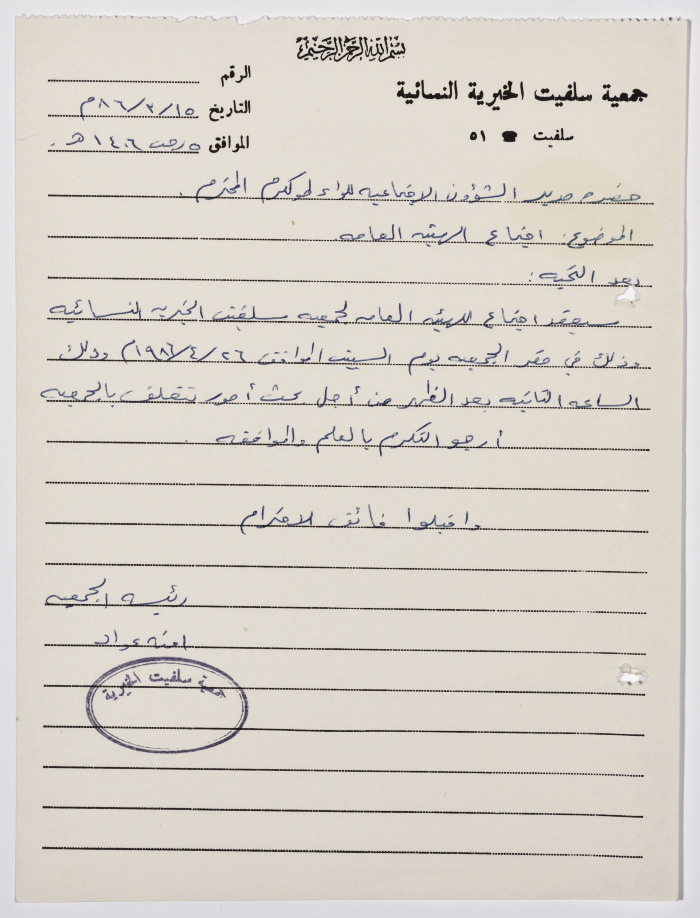 بسم الله الرحمن الرحيم
جمعية سلفيت الخيرية النسائية
سلفيت ☎ ٥١
الرقم
التاريخ ١٥/٣/٨٦م
الموافق ٥ رجب ١٤٠٦ هـ.
حضرة مدير الشؤون الاجتماعيه للواء طولكرم المحترم.
الموضوع: اجتماع الهيئه العامه
بعد التحيه:
سيعقد اجتماع للهيئه العامه لجمعيه سلفيت الخيرية النسائيه
وذلك في مقر الجمعيه يوم السبت الموافق ٢٦/٤/١٩٨٦م وذلك
الساعه الثانيه بعد الظهر من أجل بحث أمور تتعلق بالجمعيه
أرجو التكرم بالعلم والموافقه.
واقبلوا فائق الاحترام
رئيسه الجمعيه
امنه عواد
جمعية سلفيت الخيرية